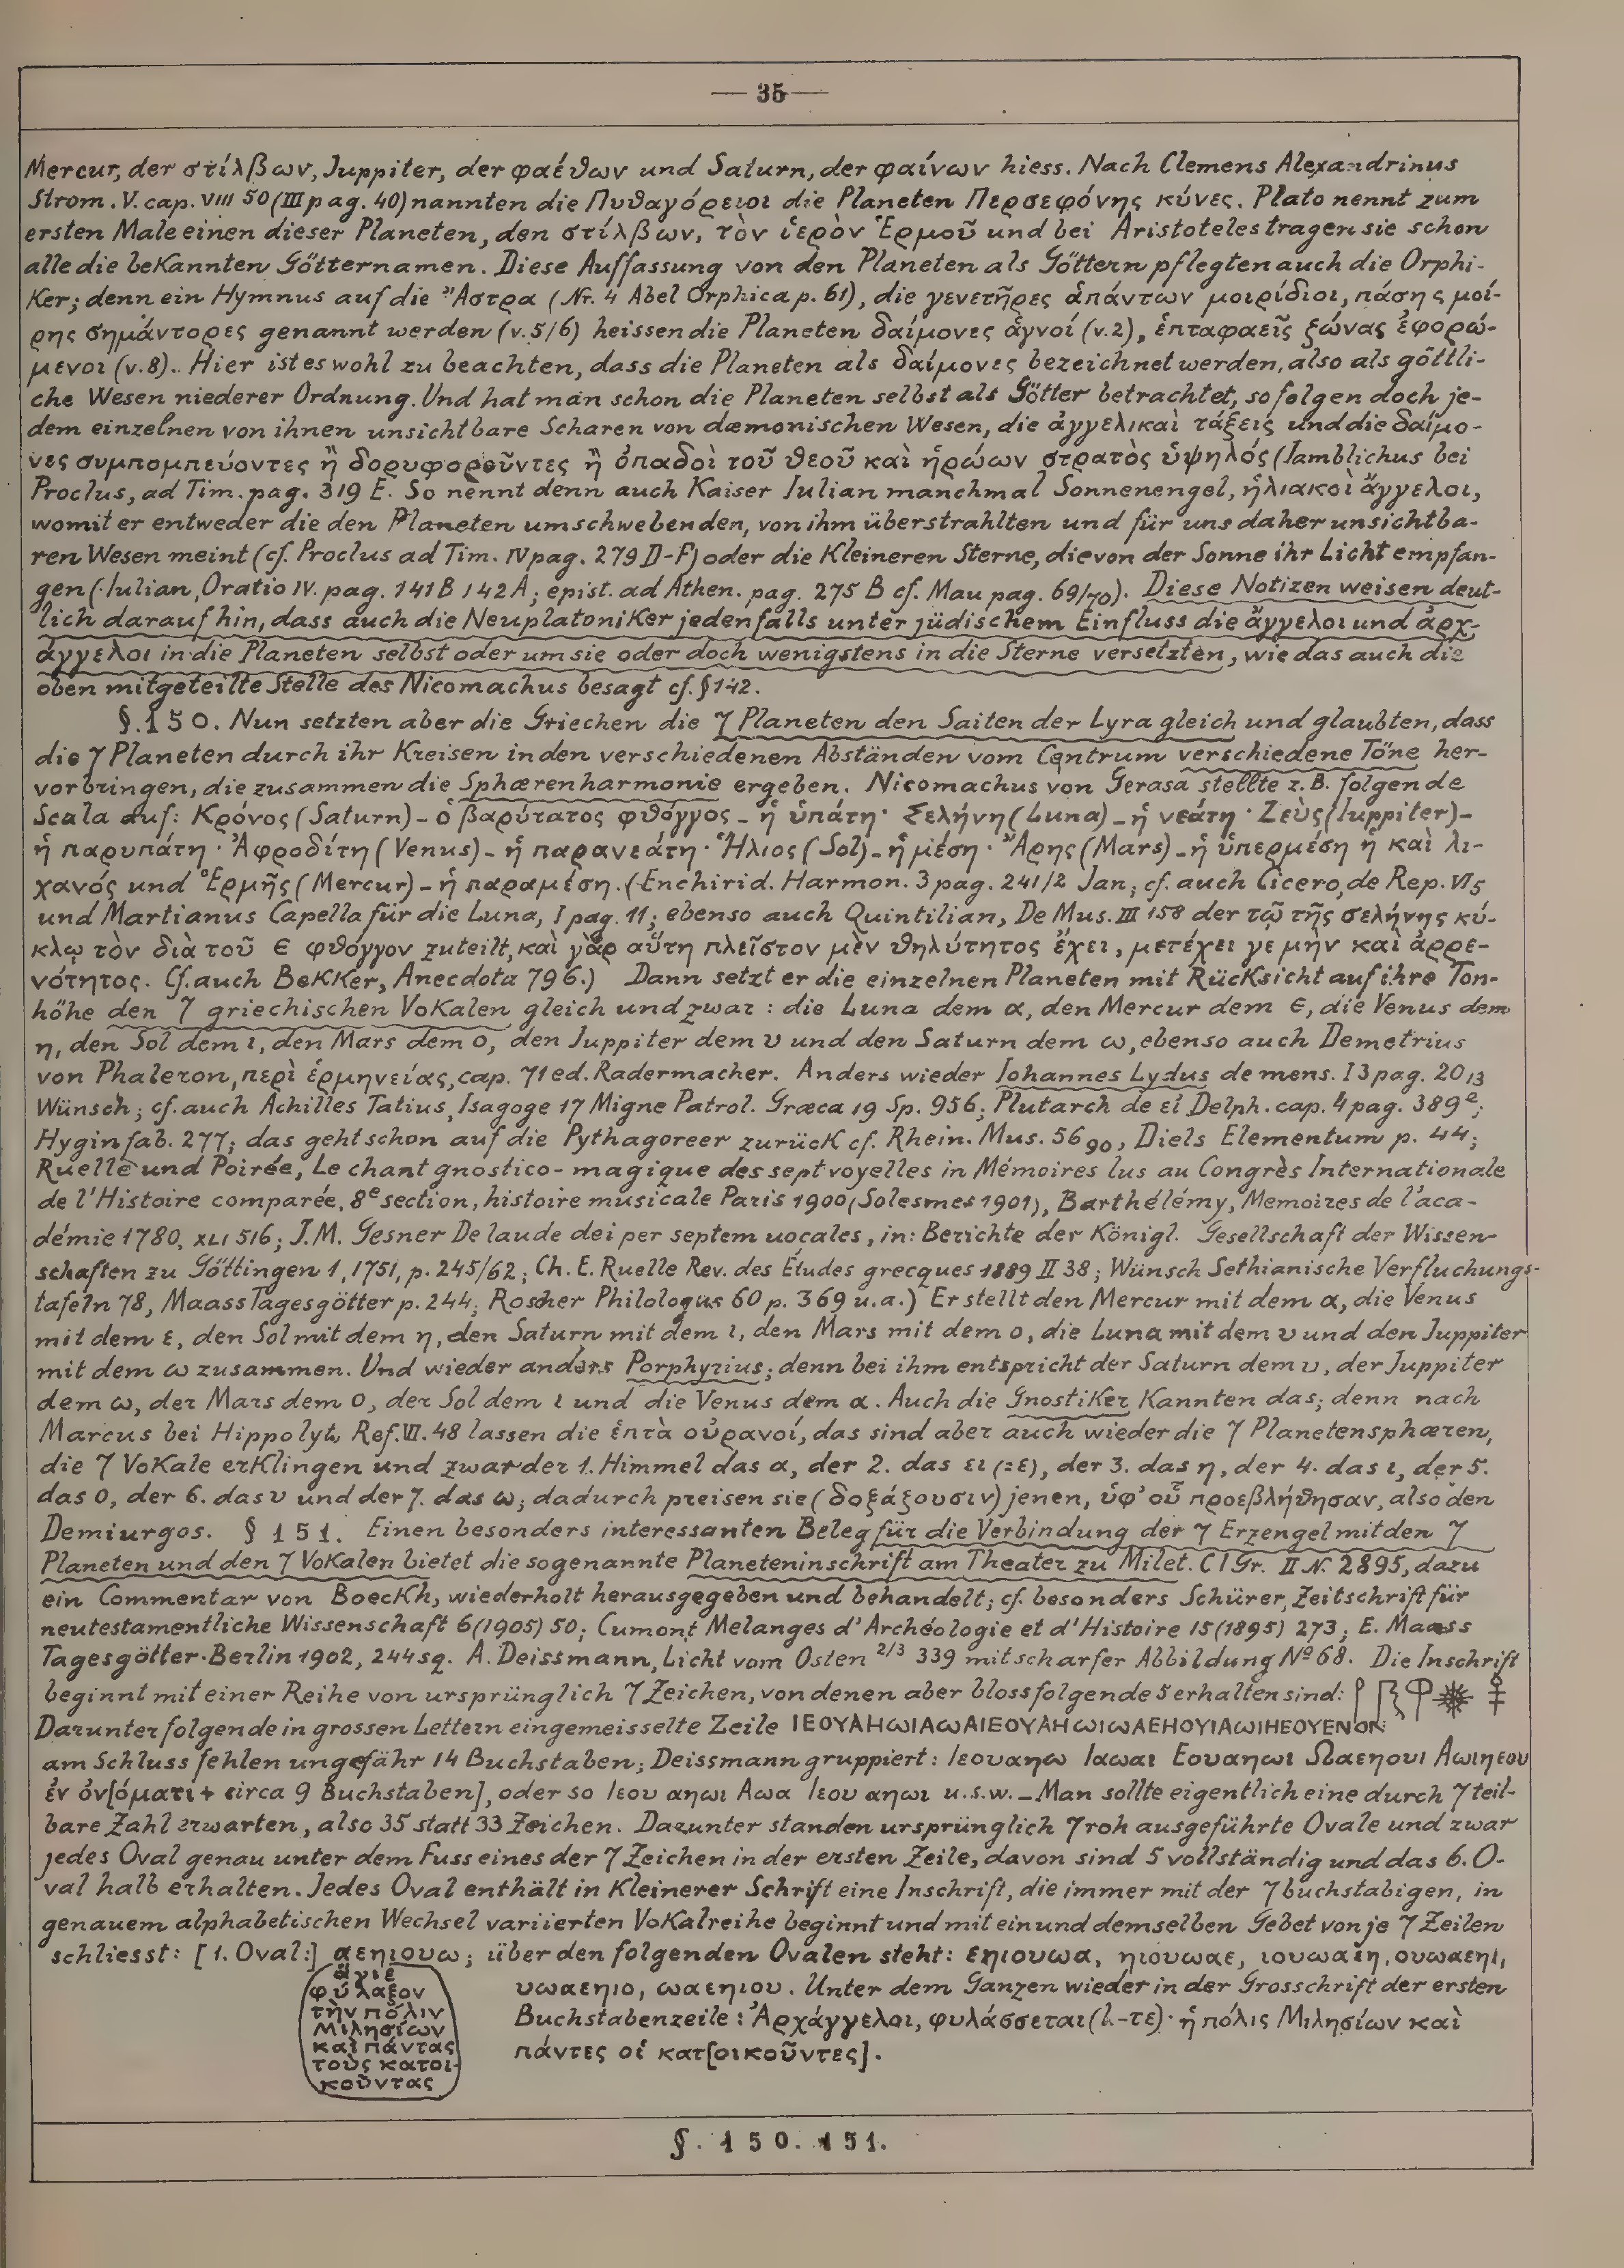 — 35 —
Mercur, der στίλβων, Juppiter, der φαέθων und Saturn, der φαίνων hiess. Nach Clemens Alexandrinus
Strom. V. cap. VIII 50 (III pag. 40) nannten die Πυθαγόρειοι die Planeten Περσεφόνης κύνες. Plato nennt zum
ersten Male einen dieser Planeten, den στίλβων, τὸν ἱερὸν Ἑρμοῦ und bei Aristoteles tragen sie schon
alle die bekannten Götternamen. Diese Auffassung von den Planeten als Göttern pflegten auch die Orphi-
ker; denn ein Hymnus auf die Ἄστρα (Nr. 4 Abel Orphica p. 61), die γενετῆρες ἁπάντων μοιρίδιοι, πάσης μοί-
ρης σημάντορες genannt werden (v. 5/6) heissen die Planeten δαίμονες ἁγνοί (v. 2), ἑπταφαεῖς ζώνας ἐφορώ-
μενοι (v. 8). Hier ist es wohl zu beachten, dass die Planeten als δαίμονες bezeichnet werden, also als göttli-
che Wesen niederer Ordnung. Und hat man schon die Planeten selbst als Götter betrachtet, so folgen doch je-
dem einzelnen von ihnen unsichtbare Scharen von dæmonischen Wesen, die ἀγγελικαὶ τάξεις und die δαίμο-
νες συμπομπεύοντες ἢ δορυφοροῦντες ἢ ὀπαδοὶ τοῦ θεοῦ καὶ ἡρώων στρατὸς ὑψηλός (Iamblichus bei
Proclus, ad Tim. pag. 319 E. So nennt denn auch Kaiser Iulian manchmal Sonnenengel, ἡλιακοὶ ἄγγελοι,
womit er entweder die den Planeten umschwebenden, von ihm überstrahlten und für uns daher unsichtba-
ren Wesen meint (cf. Proclus ad Tim. IV pag. 279 D-F) oder die kleineren Sterne, die von der Sonne ihr Licht empfan-
gen (Iulian, Oratio IV. pag. 141 B 142 A; epist. ad Athen. pag. 275 B cf. Mau pag. 69/70). Diese Notizen weisen deut-
lich darauf hin, dass auch die Neuplatoniker jedenfalls unter jüdischem Einfluss die ἄγγελοι und ἀρχ-
άγγελοι in die Planeten selbst oder um sie oder doch wenigstens in die Sterne versetzten, wie das auch die
oben mitgeteilte Stelle des Nicomachus besagt cf. § 142.
§. 150. Nun setzten aber die Griechen die 7 Planeten den Saiten der Lyra gleich und glaubten, dass
die 7 Planeten durch ihr Kreisen in den verschiedenen Abständen vom Centrum verschiedene Töne her-
vorbringen, die zusammen die Sphærenharmonie ergeben. Nicomachus von Gerasa stellte z. B. folgende
Scala auf: Κρόνος (Saturn) – ὁ βαρύτατος φθόγγος – ἡ ὑπάτη · Σελήνη (Luna) – ἡ νεάτη · Ζεὺς (Iuppiter) –
ἡ παρυπάτη · Ἀφροδίτη (Venus) – ἡ παρανεάτη · Ἥλιος (Sol) – ἡ μέση · Ἄρης (Mars) – ἡ ὑπερμέση ἢ καὶ λι-
χανός und Ἑρμῆς (Mercur) – ἡ παραμέση. (Enchirid. Harmon. 3 pag. 241/2 Jan; cf. auch Cicero, de Rep. VI 5
und Martianus Capella für die Luna, I pag. 11; ebenso auch Quintilian, De Mus. III 158 der τῷ τῆς σελήνης κύ-
κλῳ τὸν διὰ τοῦ Є φθόγγον zuteilt, καὶ γὰρ αὕτη πλεῖστον μὲν θηλύτητος ἔχει, μετέχει γε μὴν καὶ ἀρρε-
νότητος. Cf. auch Bekker, Anecdota 796.) Dann setzt er die einzelnen Planeten mit Rücksicht auf ihre Ton-
höhe den 7 griechischen Vokalen gleich und zwar: die Luna dem α, den Mercur dem Є, die Venus dem
η, den Sol dem ι, den Mars dem ο, den Iuppiter dem υ und den Saturn dem ω, ebenso auch Demetrius
von Phaleron, περὶ ἑρμηνείας, cap. 71 ed. Radermacher. Anders wieder Iohannes Lydus de mens. I 3 pag. 20 13
Wünsch; cf. auch Achilles Tatius, Isagoge 17 Migne Patrol. Græca 19 Sp. 956; Plutarch de εἰ Delph. cap. 4 pag. 389 e;
Hygin fab. 277; das geht schon auf die Pythagoreer zurück cf. Rhein. Mus. 56 90, Diels Elementum p. 44;
Ruelle und Poirée, Le chant gnostico-magique des sept voyelles in Mémoires lus au Congrès Internationale
de l'Histoire comparée, 8e section, histoire musicale Paris 1900 (Solesmes 1901), Barthélémy, Memoires de l'aca-
démie 1780, XLI 516; J. M. Gesner De laude dei per septem uocales, in: Berichte der Königl. Gesellschaft der Wissen-
schaften zu Göttingen 1, 1751, p. 245/62; Ch. E. Ruelle Rev. des Études grecques 1889 II 38; Wünsch Sethianische Verfluchungs-
tafeln 78, Maass Tagesgötter p. 244; Roscher Philologus 60 p. 369 u.a.) Er stellt den Mercur mit dem α, die Venus
mit dem ε, den Sol mit dem η, den Saturn mit dem ι, den Mars mit dem ο, die Luna mit dem υ und den Iuppiter
mit dem ω zusammen. Und wieder anders Porphyrius; denn bei ihm entspricht der Saturn dem υ, der Juppiter
dem ω, der Mars dem ο, der Sol dem ι und die Venus dem α. Auch die Gnostiker kannten das; denn nach
Marcus bei Hippolyt, Ref. VI. 48 lassen die ἑπτὰ οὐρανοί, das sind aber auch wieder die 7 Planetensphæren,
die 7 Vokale erklingen und zwar der 1. Himmel das α, der 2. das ει (=ε), der 3. das η, der 4. das ι, der 5.
das ο, der 6. das υ und der 7. das ω; dadurch preisen sie (δοξάζουσιν) jenen, ὑφ' οὗ προεβλήθησαν, also den
Demiurgos. § 151. Einen besonders interessanten Beleg für die Verbindung der 7 Erzengel mit den 7
Planeten und den 7 Vokalen bietet die sogenannte Planeteninschrift am Theater zu Milet. C I Gr. II N. 2895, dazu
ein Commentar von Boeckh, wiederholt herausgegeben und behandelt; cf. besonders Schürer, Zeitschrift für
neutestamentliche Wissenschaft 6 (1905) 50; Cumont Melanges d'Archéologie et d'Histoire 15 (1895) 273; E. Maass
Tagesgötter · Berlin 1902, 244 sq. A. Deissmann, Licht vom Osten 2/3 339 mit scharfer Abbildung No 68. Die Inschrift
beginnt mit einer Reihe von ursprünglich 7 Zeichen, von denen aber bloss folgende 5 erhalten sind:
Darunter folgende in grossen Lettern eingemeisselte Zeile ΙΕΟΥΑΗωΙΑωΑΙΕΟΥΑΗωΙωΑΕΗΟΥΙΑωΙΗΕΟΥΕΝΟΝ:
am Schluss fehlen ungefähr 14 Buchstaben; Deissmann gruppiert: Ιεουαηω Ιαωαι Εουαηωι Ωαεηουι Αωιηεου
ἐν ὀν[όματι + circa 9 Buchstaben], oder so Ιεου αηωι Αωα Ιεου αηωι u.s.w. – Man sollte eigentlich eine durch 7 teil-
bare Zahl erwarten, also 35 statt 33 Zeichen. Darunter standen ursprünglich 7 roh ausgeführte Ovale und zwar
jedes Oval genau unter dem Fuss eines der 7 Zeichen in der ersten Zeile, davon sind 5 vollständig und das 6. O-
val halb erhalten. Jedes Oval enthält in kleinerer Schrift eine Inschrift, die immer mit der 7 buchstabigen, in
genauem alphabetischen Wechsel variierten Vokalreihe beginnt und mit ein und demselben Gebet von je 7 Zeilen
schliesst: [1. Oval:] αεηιουω; über den folgenden Ovalen steht: εηιουωα, ηιουωαε, ιουωαεη, ουωαεηι,
υωαεηιο, ωαεηιου. Unter dem Ganzen wieder in der Grosschrift der ersten
Buchstabenzeile: Ἀρχάγγελοι, φυλάσσεται (l. -τε) · ἡ πόλις Μιλησίων καὶ
πάντες οἱ κατ[οικοῦντες].
ἅγιε
φύλαξον
τὴν πόλιν
Μιλησίων
καὶ πάντας
τοὺς κατοι-
κοῦντας
§. 150. 151.